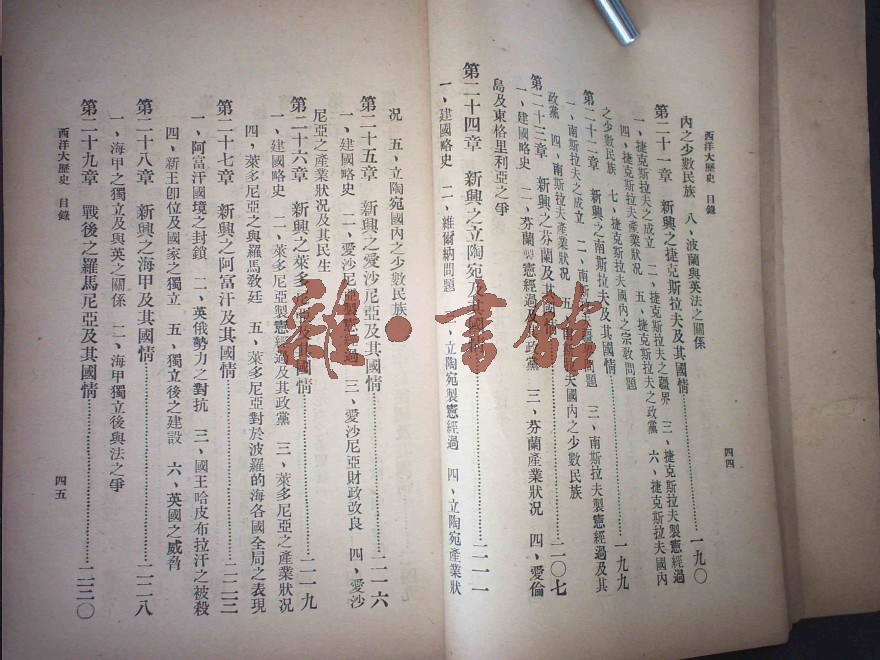 西洋大歷史 目錄
四四
內之少數民族 八、波蘭與英法之關係
第二十一章 新興之捷克斯拉夫及其國情……一九〇
一、捷克斯拉夫之成立 二、捷克斯拉夫之疆界 三、捷克斯拉夫製憲經過
四、捷克斯拉夫產業狀況 五、捷克斯拉夫之政黨 六、捷克斯拉夫國內
之少數民族 七、捷克斯拉夫國內之宗教問題
第二十二章 新興之南斯拉夫及其國情……一九九
一、南斯拉夫之成立 二、南斯拉夫疆界問題 三、南斯拉夫製憲經過及其
政黨 四、南斯拉夫產業狀況 五、南斯拉夫國內之少數民族
第二十三章 新興之芬蘭及其國情……二〇七
一、建國略史 二、芬蘭製憲經過及其政黨 三、芬蘭產業狀況 四、愛倫
島及東格里利亞之爭
第二十四章 新興之立陶宛及其國情……二一一
一、建國略史 二、維爾納問題 三、立陶宛製憲經過 四、立陶宛產業狀
況 五、立陶宛國內之少數民族
第二十五章 新興之愛沙尼亞及其國情……二一六
一、建國略史 二、愛沙尼亞製憲經過 三、愛沙尼亞財政改良 四、愛沙
尼亞之產業狀況及其民生
第二十六章 新興之萊多尼亞及其國情……二一九
一、建國略史 二、萊多尼亞製憲經過及其政黨 三、萊多尼亞之產業狀況
四、萊多尼亞之與羅馬敎廷 五、萊多尼亞對於波羅的海各國全局之表現
第二十七章 新興之阿富汗及其國情……二二三
一、阿富汗國境之封鎖 二、英俄勢力之對抗 三、國王哈皮布拉汗之被殺
四、新王卽位及國家之獨立 五、獨立後之建設 六、英國之威脅
第二十八章 新興之海甲及其國情……二二八
一、海甲之獨立及與英之關係 二、海甲獨立後與法之爭
第二十九章 戰後之羅馬尼亞及其國情……二三〇
西洋大歷史 目錄
四五
雜·書館